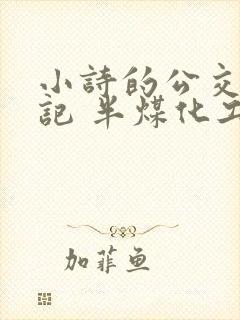 小詩的公交
記 半煤化工
加菲魚